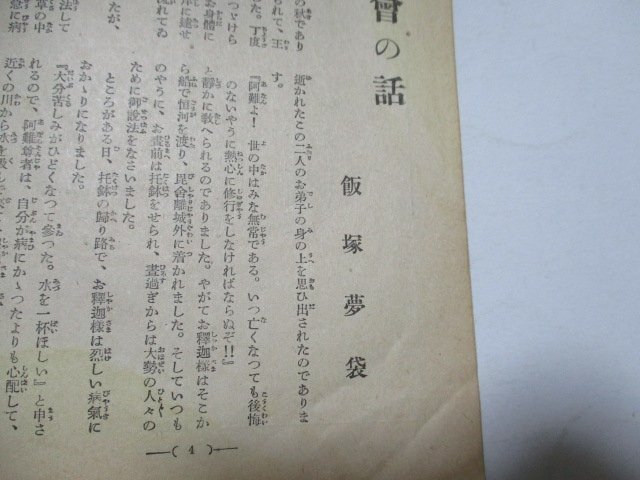 會の話
飯塚夢袋
逝かれたこの二人のお弟子の身の上を思ひ出されたのでありま
す。
『阿難よ！　世の中はみな無常である。いつ亡くなつても後悔
のないやうに熱心に修行をしなければならぬぞ！！』
と靜かに敎へられるのでありました。やがてお釋迦樣はそこか
ら船で恒河を渡り、毘舍離城外に着かれました。そしていつも
のやうに、お晝前は托鉢をせられ、晝過ぎからは大勢の人々の
ために御說法をなさいました。
ところがある日、托鉢の歸り路で、お釋迦樣は烈しい病氣に
おかゝりになりました。
『大分苦しみがひどくなつて參つた。水を一杯ほしい』と申さ
れるので、阿難尊者は、自分が病にかゝつたよりも心配して、
近くの川から水を
の秋であり
られて、王
た。丁度
つゞけら
お身體に
岸に達せ
流れてゐ
法して
たが、
草の中
急に病
—( 4 )—